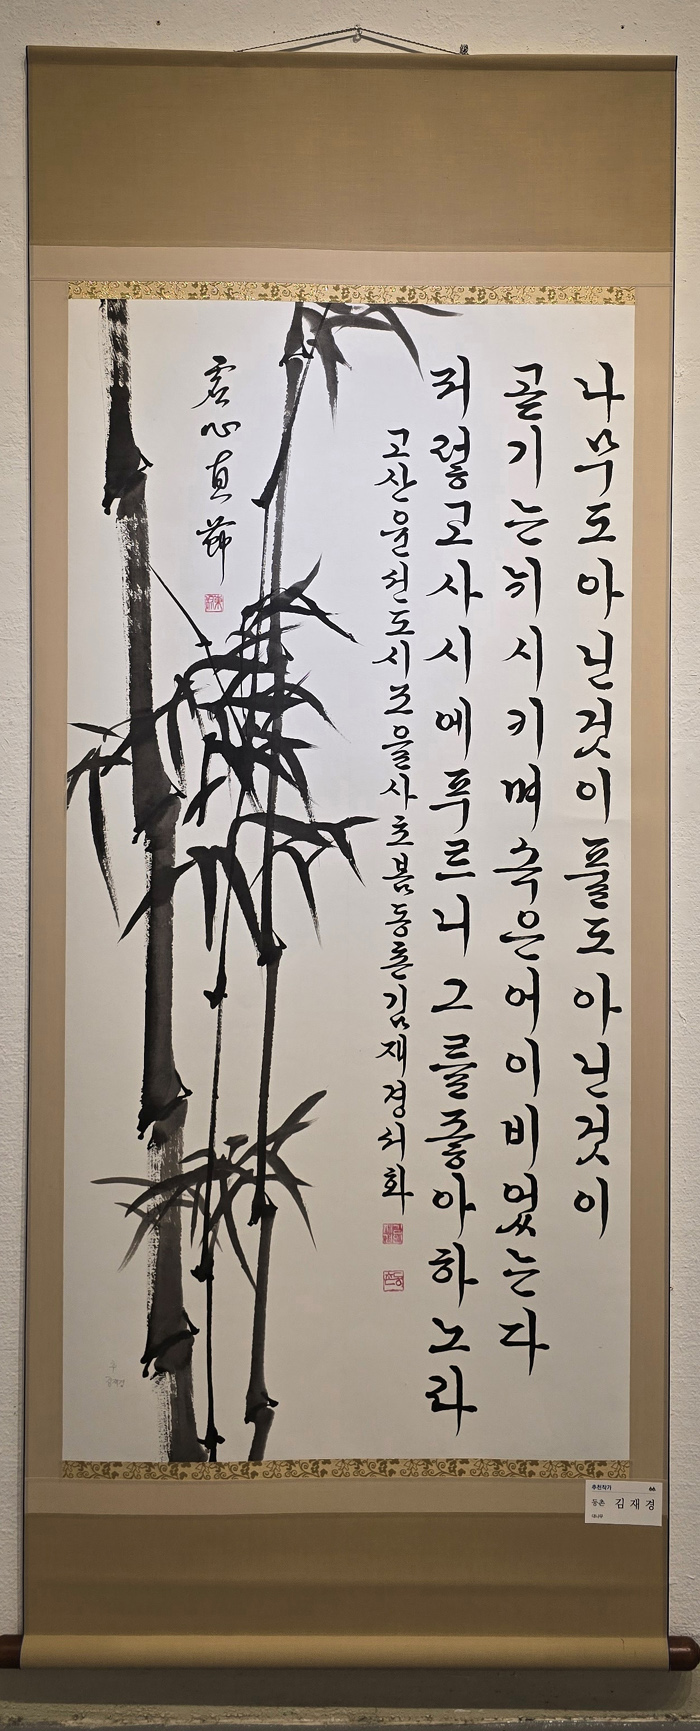 나무도아닌것이풀도아닌것이
곧기는뉘시키며속은어이비었는다
뎌렇고사시에푸르니그를좋아하노라
고산윤선도시조을사초봄동촌김재경쓰고그림
虛心直節
추천작가 66
동촌 김재경
대나무